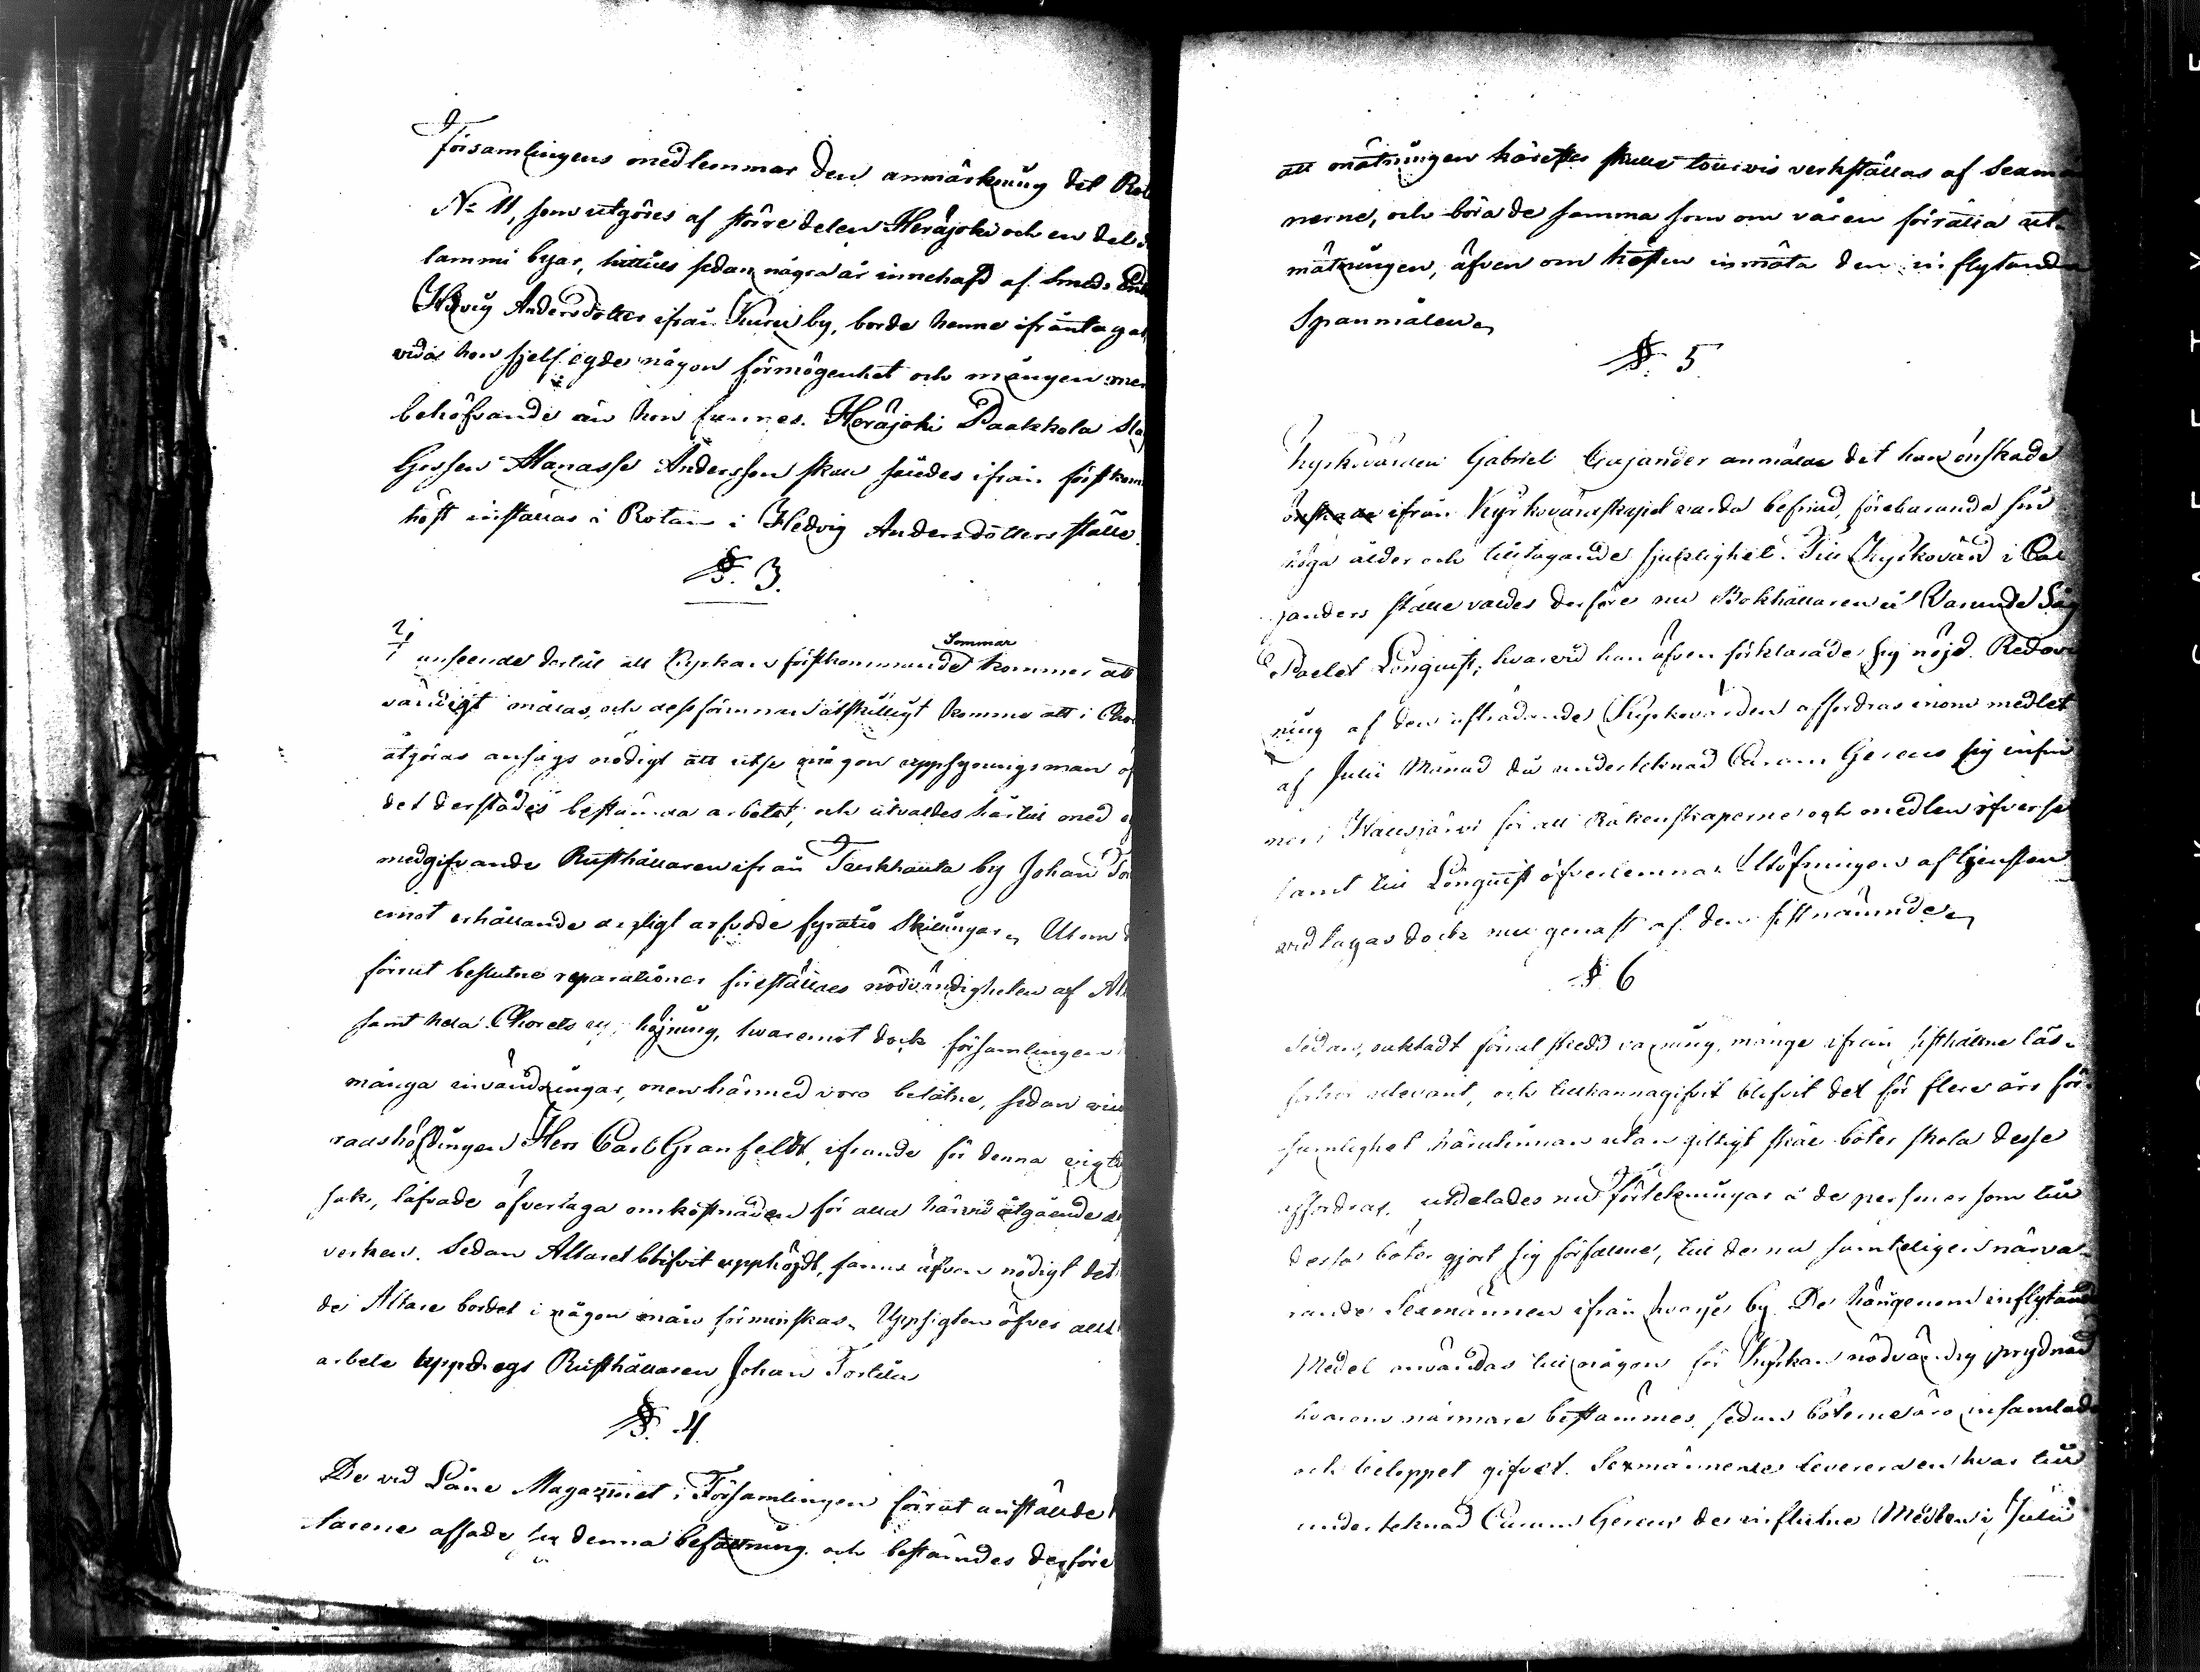 Församlingens medlemmar den anmärkning det Rot
No 11, som utgöres af större delen Heräjoki och en del
lammi byar, hittils sedan några år innehafd af Smeds Enk
Hedvig Andersdotter ifrån Kuru by, borde henne ifråntagas
vida hon sjelf egde någon förmögenhet och mången mer
behöfvande än hon funnes. Heräjoki Paakkola
Gossen Manasse Andersson skall såledės ifrån förstkom
höst inställas i Rotan i Hedvig Andersdotters ställe.
§. 3.
I anseende dertill att Kyrkan förstkommande Sommar kommer att
målas, och dessförinnan åtskilligt komme att i Chor
åtgöras ansågs nödigt att utse någon uppsyningsman öf
det derstädes bestämda arbetet, och utvaldes härtill med
medgifvande Rusthållaren ifrån Turkhauta by Johan
emot erhållande dagligt arfvode fyratio skillingar. Utom
förut beslutne reparationer föreställdes nödvändigheten af Al
samt hela Chorets höjning, hvaremot dock församlingen
många invändningar, men härmed voro belåtne, sedan
radshöfdingen Herr Carl Granfeldt, ifrande för denna vigt
sak, låfvade öfvertaga omkostnaden för alla härvid åtgående
verken. Sedan Altaret blifvit upphöjdt, fanns äfven nödigt det
de Altare bordet i någon mån förminskas. Uppsigten öfver allt
arbete uppdrogs Rusthållaren Johan Tortila
§. 4.
De vid Låne Magazinet i Församlingen förut anställde
tarene afsade sig denna befattning och bestämdes derföre
att mätningen härefter skulle tourvis verkställas af Sexmän
nerne, och böra de samma som om våren förrätta ut-
mätningen, äfven om hösten inmäta den inflytande
Spanmålen.
§. 5.
Kyrkovärden Gabriel Cajander anmälde det han önskade
önskade ifrån Kyrkovärdskapet varda befriad, förebärande sin
höga ålder och tilltagande sjuklighet. Till Kyrkovärd i Ca
janders ställe valdes derföre nu Bokhållaren å Vanunde Såg
Paelet Lönquist, hvarvid han äfven förklarade sig nöjd. Redovis
ning af den afträdande Kyrkovärden affordras inom medlet
af Julii Månad då undertecknad Curam Gerens sig infin
ner i Hausjärvi för att Räkenskaperne och medlen öfverse
samt till Lönquist öfverlemna. Utöfningen af tjensten
vidtagas dock nu genast af den sistnämnde.
§ 6
Sedan, oaktadt förut skedd varning, månge ifrån sisthållne läs-
förhör utevarit, och tillkännagifvit blifvit det för flere års för-
sumlighet härutinnan utan giltigt skäl böter skola desse
affordras, utdelades nu förtekningar å de personer som till
desse böter gjort sig förfallne, till de nu samteligen närva-
rande Sexmännen ifrån hvarje by. De härigenom inflytande
Medel användas till någon för Kyrkan nödvändig prydnad
hvarom närmare bestämmes, sedan böterne äro insamlade
och beloppet gifvet. Sexmännerne levererar en hvar till
undertecknad Curam Gerens de influtne Medlen i Julii